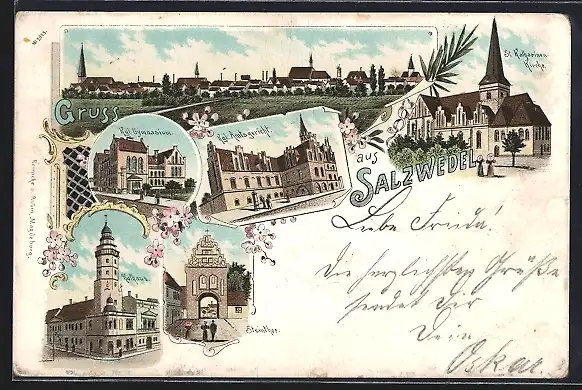 Gruss
aus
SALZWEDEL
St. Katharinen
Kirche.
Kgl. Gymnasium.
Kgl. Amtsgericht.
Rathaus.
Steinthor.
Magdeburg.
Liebe Frieda!
Die herzlichsten Grüße
sendet Dir
Dein
Oskar.